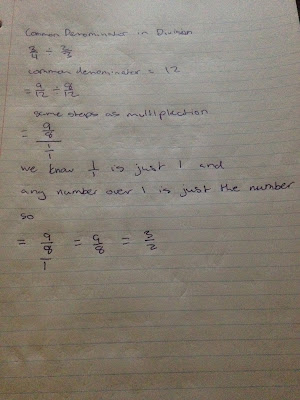 Common Denominator in Division
3/4 ÷ 2/3
common denominator = 12
= 9/12 ÷ 8/12
same steps as multiplication
= 9/8 / 1/1
we know 1/1 is just 1 and
any number over 1 is just the number
so
= 9/8 / 1 = 9/8 = 3/2